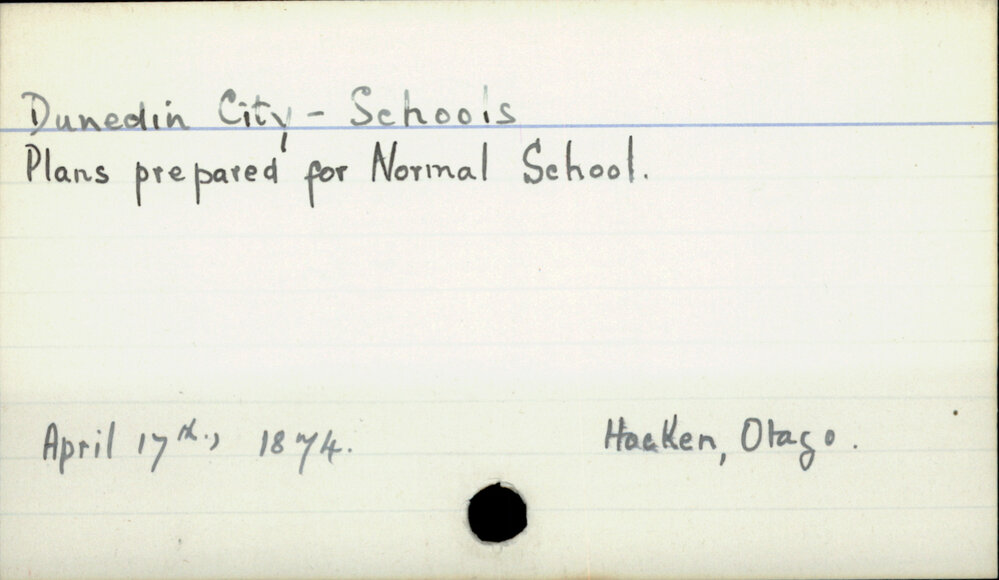 Dunedin City - Schools
Plans prepared for Normal School.
April 17th., 1874. Hocken, Otago.